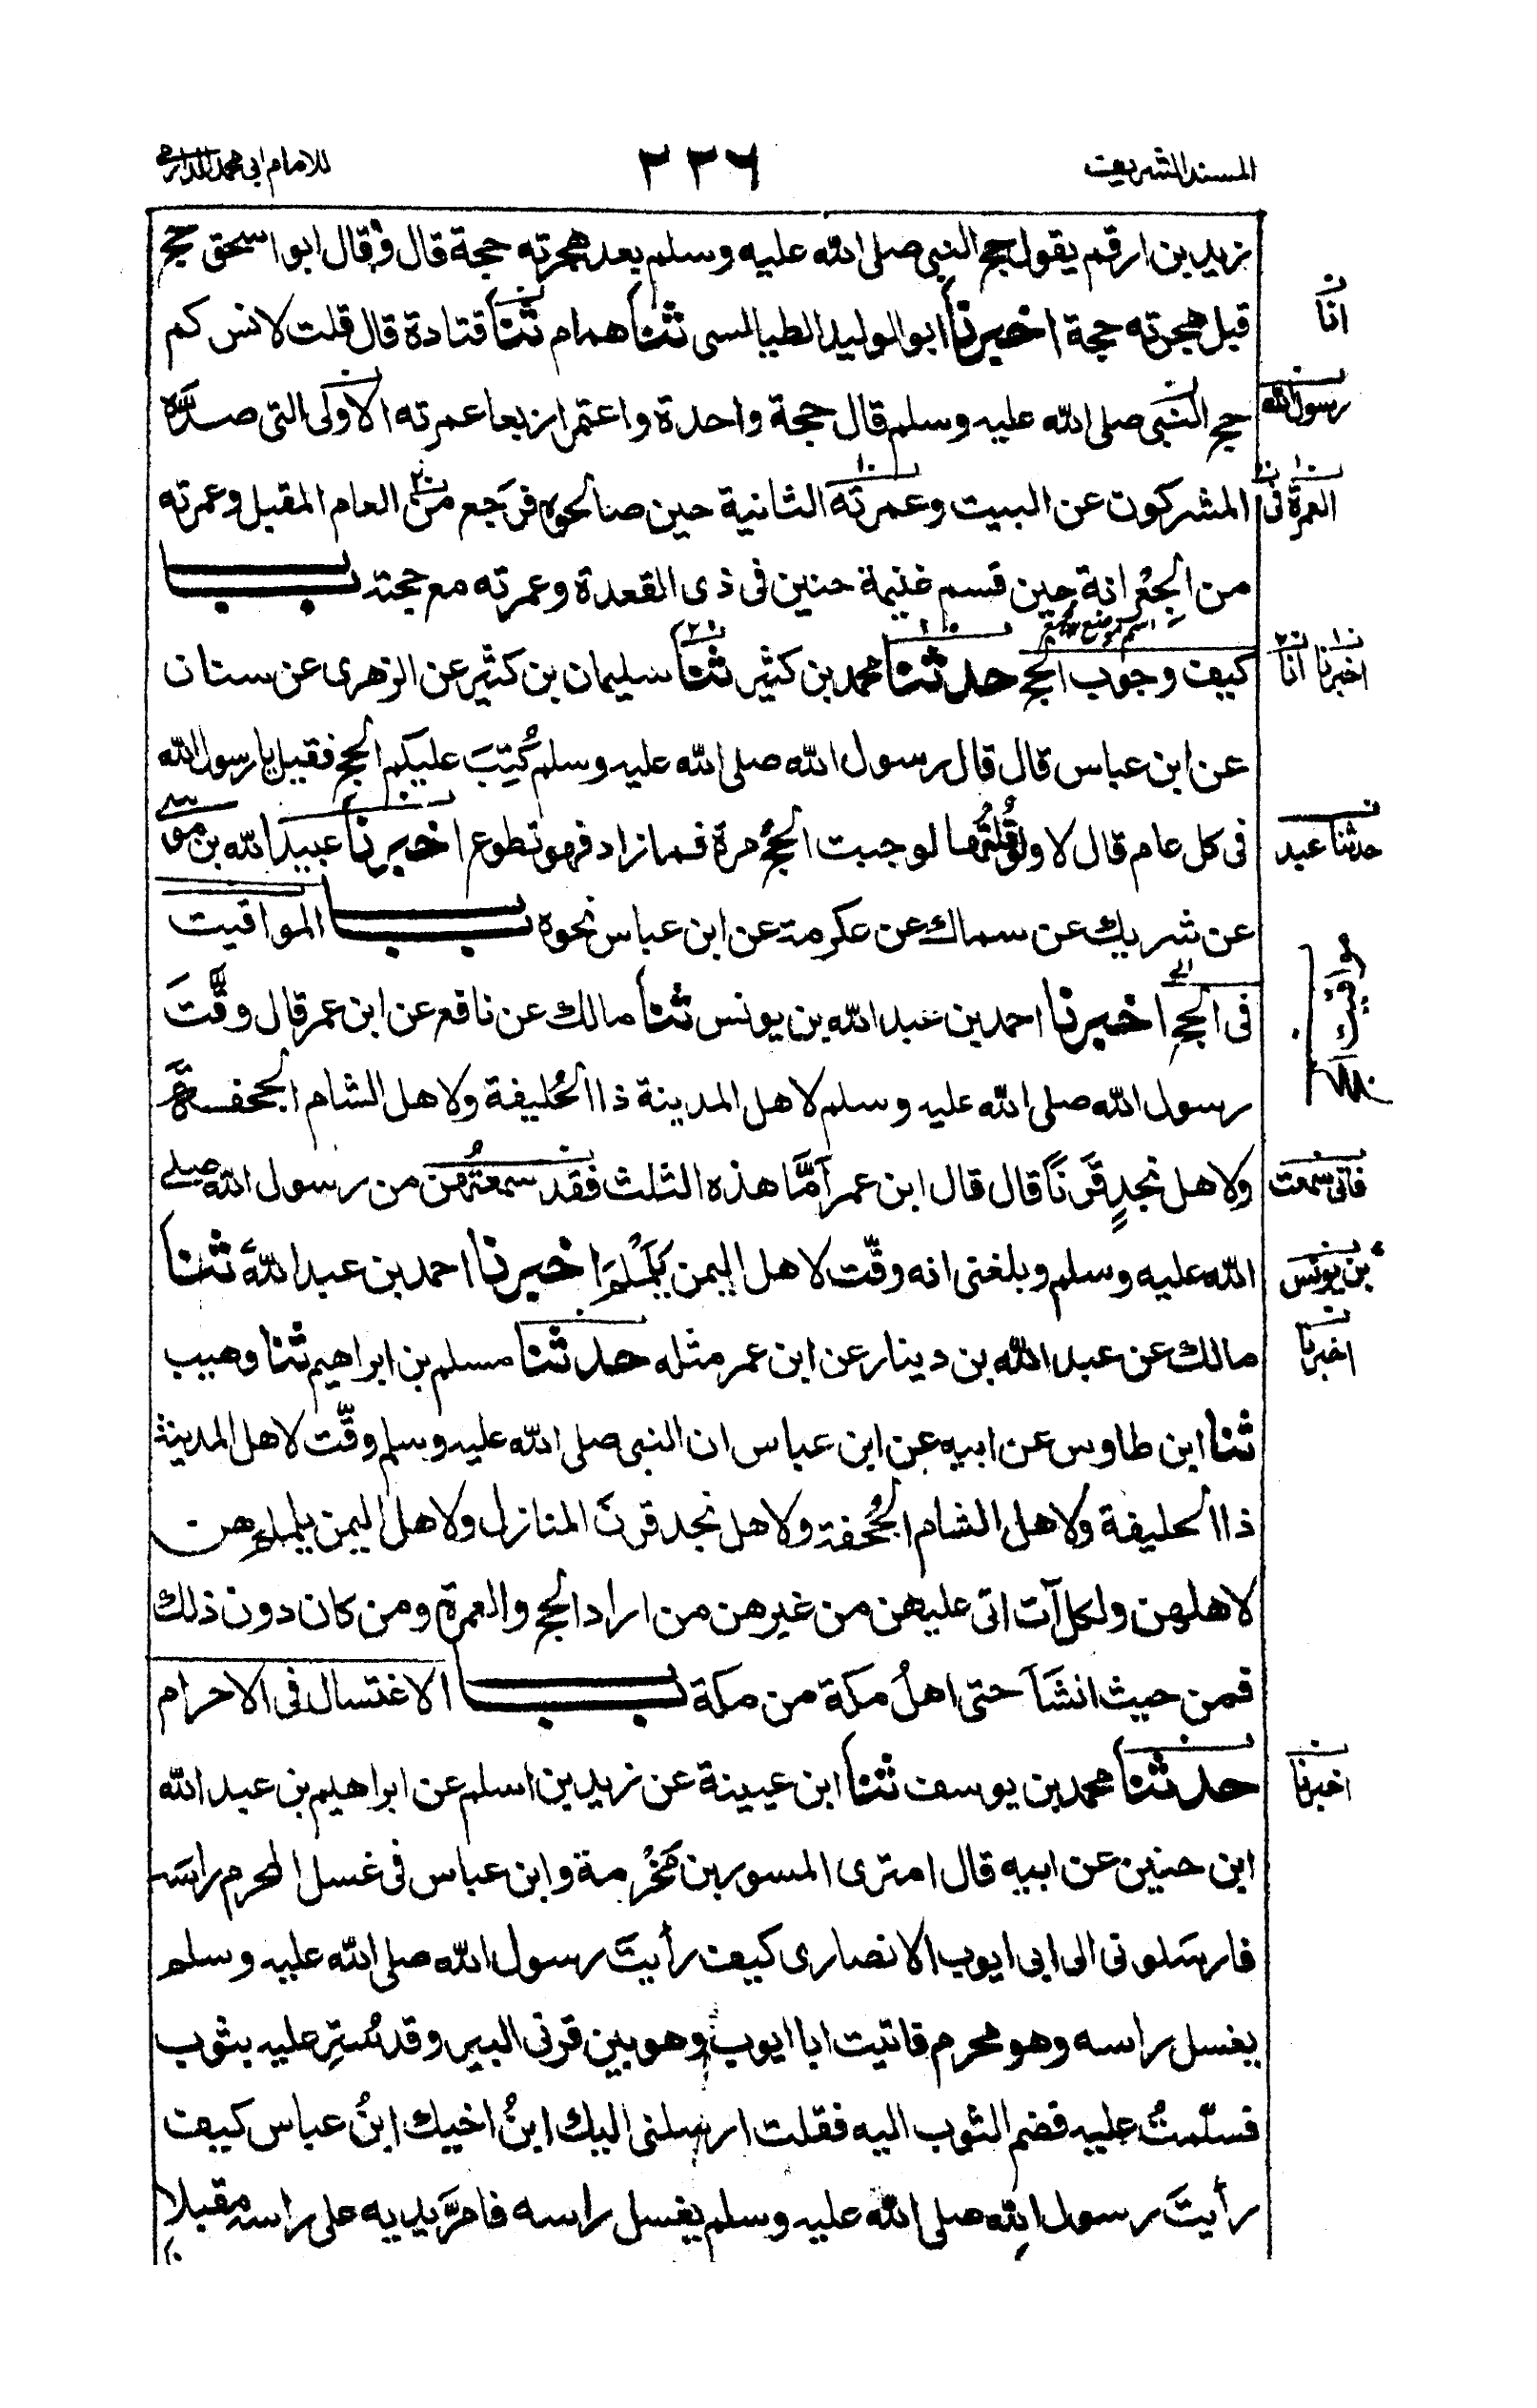 المسند الشريف ٢٢٦ للامام ابی محمد الدارمی
زيد بن ارقم يقول حج النبى صلى الله عليه وسلم بعد هجرته حجة قال وقال ابو اسحق حج
قبل هجرته حجة اخبرنا ابو الوليد الطيالسى ثنا همام ثنا قتادة قال قلت لانس كم
انا
حج النبى صلى الله عليه وسلم قال حجة واحدة واعتمر اربعا عمرته الاولى التى صدَّه
رسول الله
المشركون عن البيت وعمرته الثانية حين صالحوه فرجع من العام المقبل وعمرته
العمرة فى
من الجِعْرانة حين قسم غنيمة حنين فى ذى القعدة وعمرته مع حجته بـــاب
اسم موضع
كيف وجوب الحج حدثنا محمد بن كثير ثنا سليمان بن كثير عن الزهرى عن سنان
اخبرنا انا
عن ابن عباس قال قال رسول الله صلى الله عليه وسلم كُتِبَ عليكم الحج فقيل يا رسول الله
فى كل عام قال لا ولو قُلتُها لوجبت الحجُّ مرة فما زاد فهو تطوع اخبرنا عبيد الله بن موسى
حدثنا عبد
عن شريك عن سماك عن عكرمة عن ابن عباس نحوه بـــاب المواقيت
فى الحج اخبرنا احمد بن عبد الله بن يونس ثنا مالك عن نافع عن ابن عمر قال وقَّتَ
مواقيت
رسول الله صلى الله عليه وسلم لاهل المدينة ذا الحُليفة ولاهل الشام الجحفة
ولاهل نجدٍ قَرنًا قال قال ابن عمر امَّا هذه الثلث فقد سمعتُهن من رسول الله صلى
فانى سمعت
الله عليه وسلم وبلغنى انه وقّت لاهل اليمن يَلَمْلَمَ اخبرنا احمد بن عبد الله ثنا
بن يونس
مالك عن عبد الله بن دينار عن ابن عمر مثله حدثنا مسلم بن ابراهيم ثنا وهيب
اخبرنا
ثنا ابن طاوس عن ابيه عن ابن عباس ان النبى صلى الله عليه وسلم وقّت لاهل المدينة
ذا الحليفة ولاهل الشام الجُحفة ولاهل نجد قرن المنازل ولاهل اليمن يلملم هن
لاهلهن ولكل آت اتى عليهن من غيرهن من اراد الحج والعمرة ومن كان دون ذلك
فمن حيث انشَأَ حتى اهلُ مكة من مكة بـــاب الاغتسال فى الاحرام
حدثنا محمد بن يوسف ثنا ابن عيينة عن زيد بن اسلم عن ابراهيم بن عبد الله
اخبرنا
ابن حنين عن ابيه قال امترى المسور بن مَخْرمة وابن عباس فى غسل المحرم راسَه
فارسَلونى الى ابى ايوب الانصارى كيف رأيتَ رسول الله صلى الله عليه وسلم
يغسل راسه وهو محرم فاتيت ابا ايوب وهو بين قرنى البير وقد سُتِر عليه بثوب
فسلّمتُ عليه فضم الثوب اليه فقلت ارسلنى اليك ابنُ اخيك ابنُ عباس كيف
رأيتَ رسول الله صلى الله عليه وسلم يغسل راسه فامرَّ يديه على راسه مقبلا